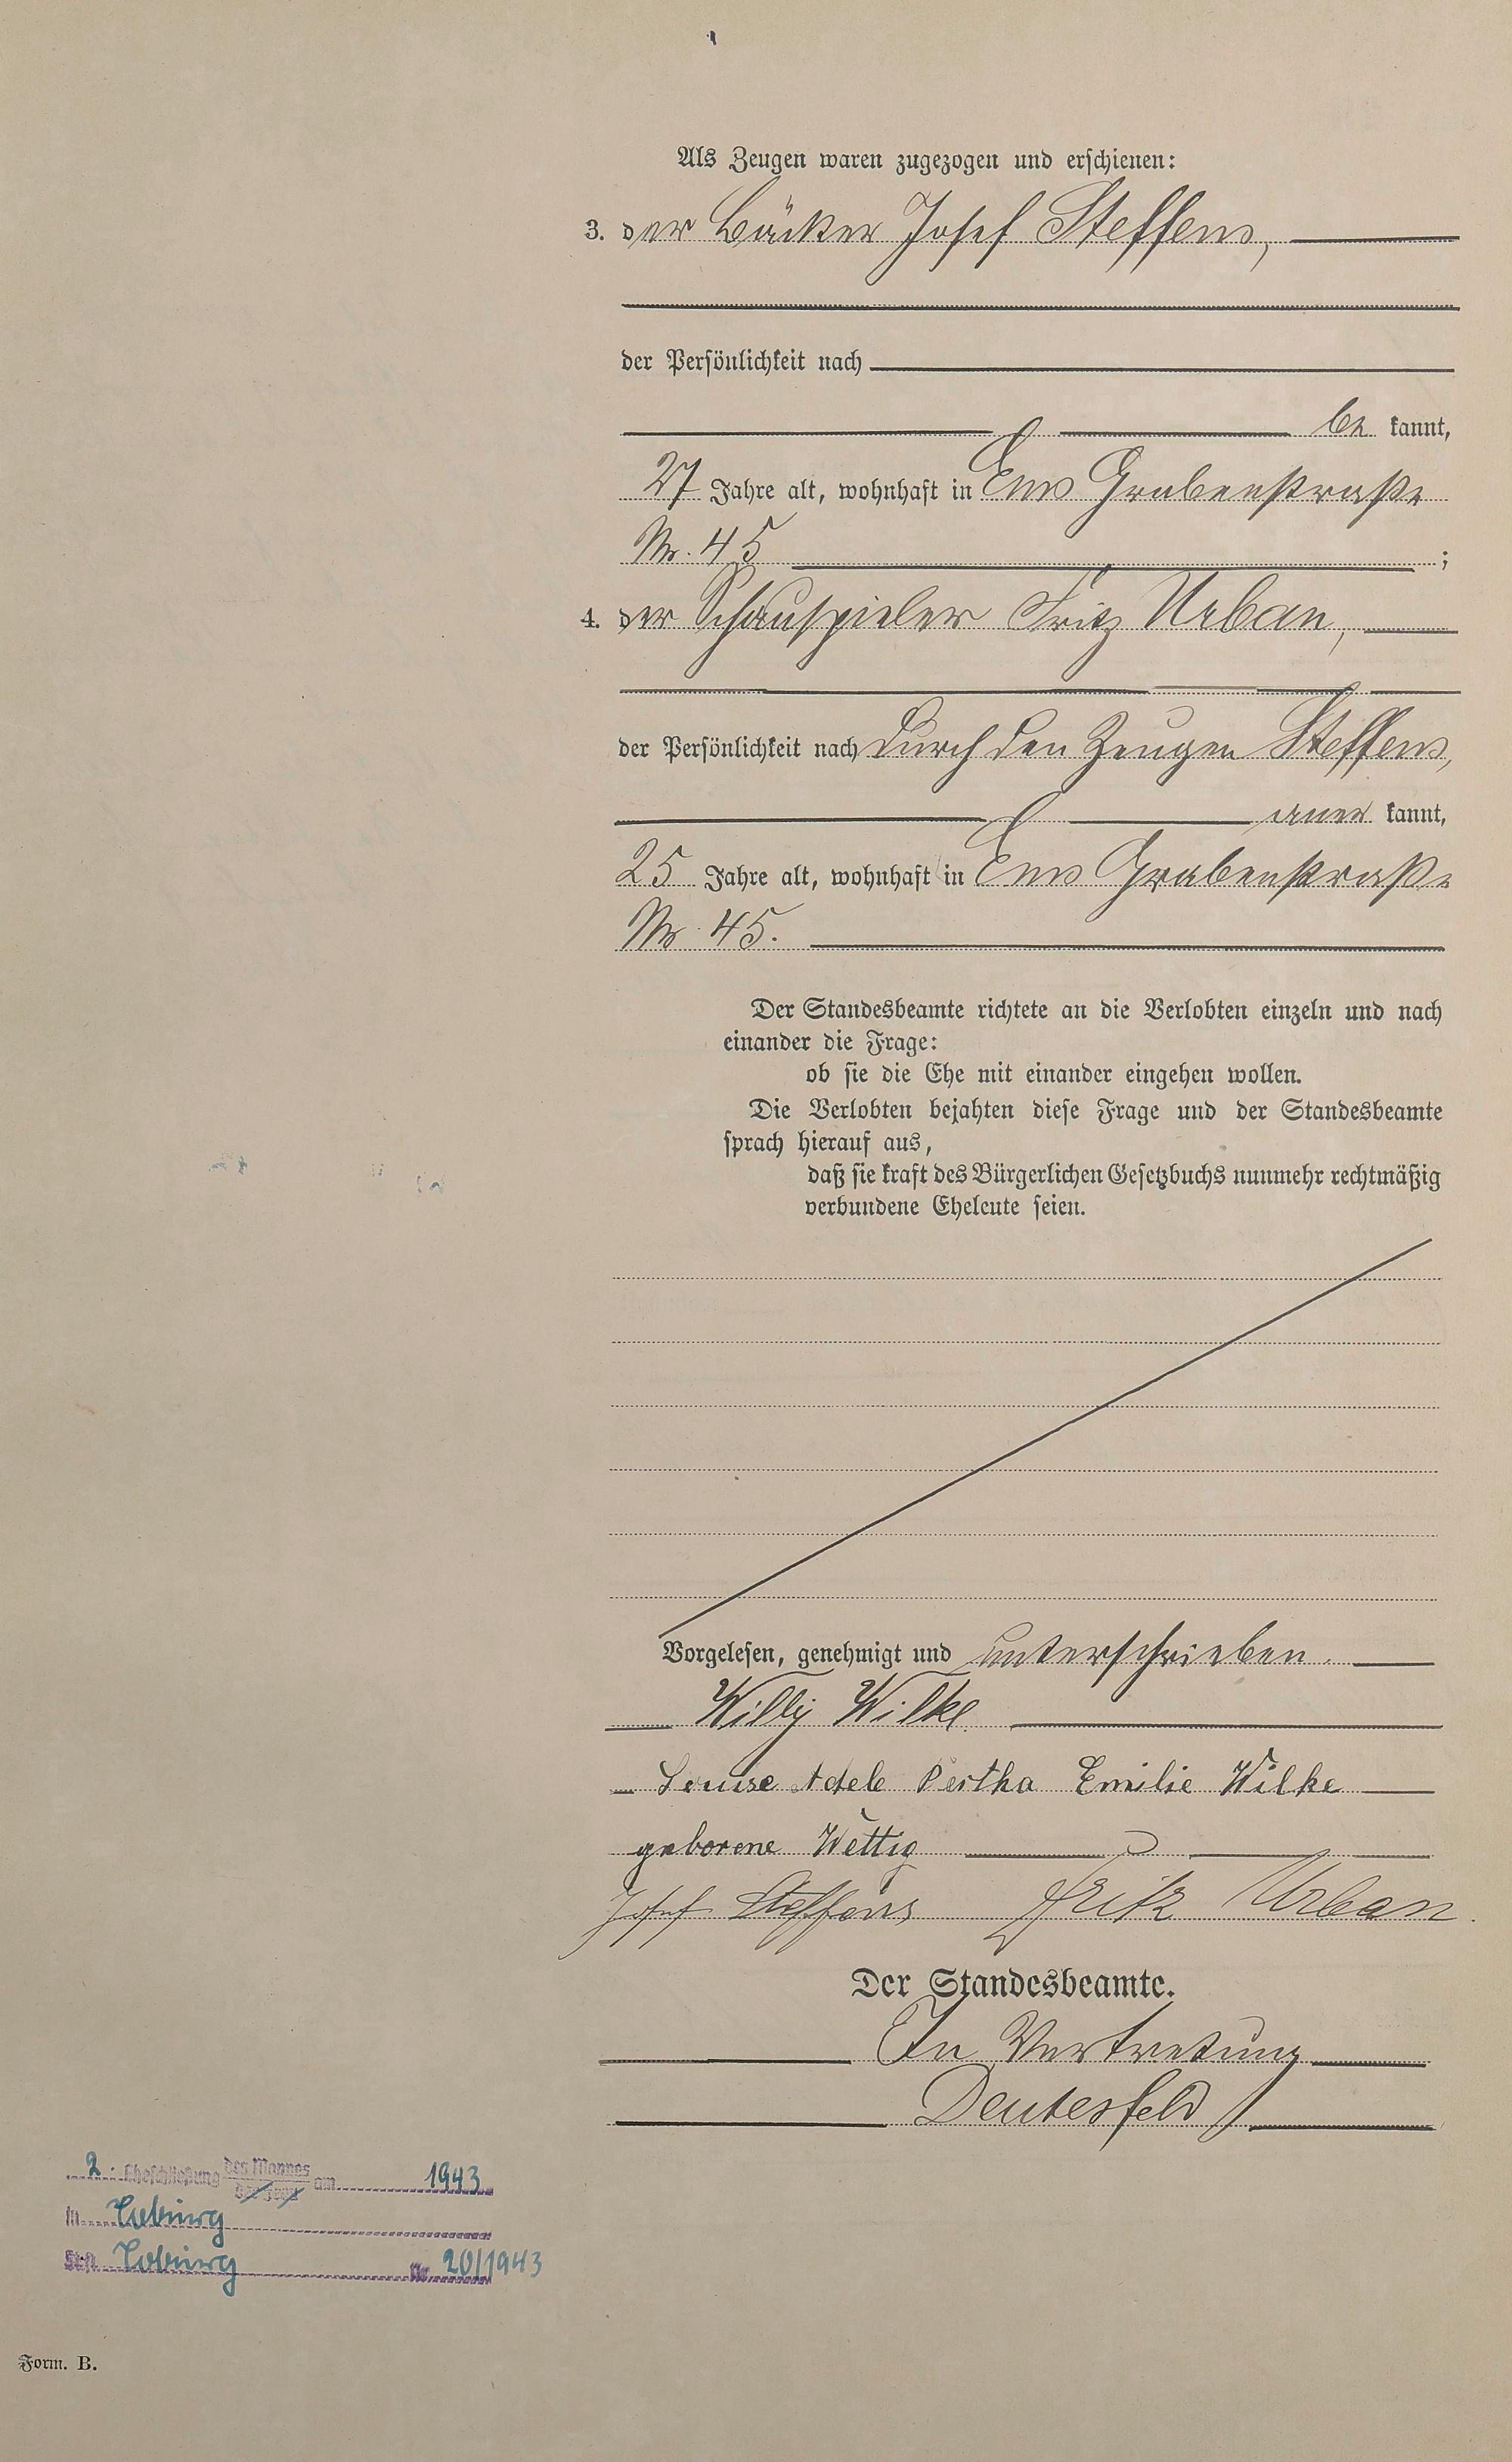 Als Zeugen waren zugezogen und erschienen:
3. der Bäcker Josef Steffens,
der Persönlichkeit nach
be kannt,
27 Jahre alt, wohnhaft in Ems Grabenstraße
Nr. 45 ;
4. der Schauspieler Fritz Urban,
der Persönlichkeit nach durch den Zeugen Steffens,
aner kannt,
25 Jahre alt, wohnhaft in Ems Grabenstraße
Nr. 45.
Der Standesbeamte richtete an die Verlobten einzeln und nach
einander die Frage:
ob sie die Ehe mit einander eingehen wollen.
Die Verlobten bejahten diese Frage und der Standesbeamte
sprach hierauf aus,
daß sie kraft des Bürgerlichen Gesetzbuchs nunmehr rechtmäßig
verbundene Eheleute seien.
Vorgelesen, genehmigt und unterschrieben.
Willy Wilke
Louise Adele Bertha Emilie Wilke
geborene Wettig
Josef Steffens Fritz Urban.
Der Standesbeamte.
In Vertretung
Deutesfeld
2. Eheschließung des Mannes am 1943
der Frau
in Coburg
St.A. Coburg Nr. 20/1943
Form. B.